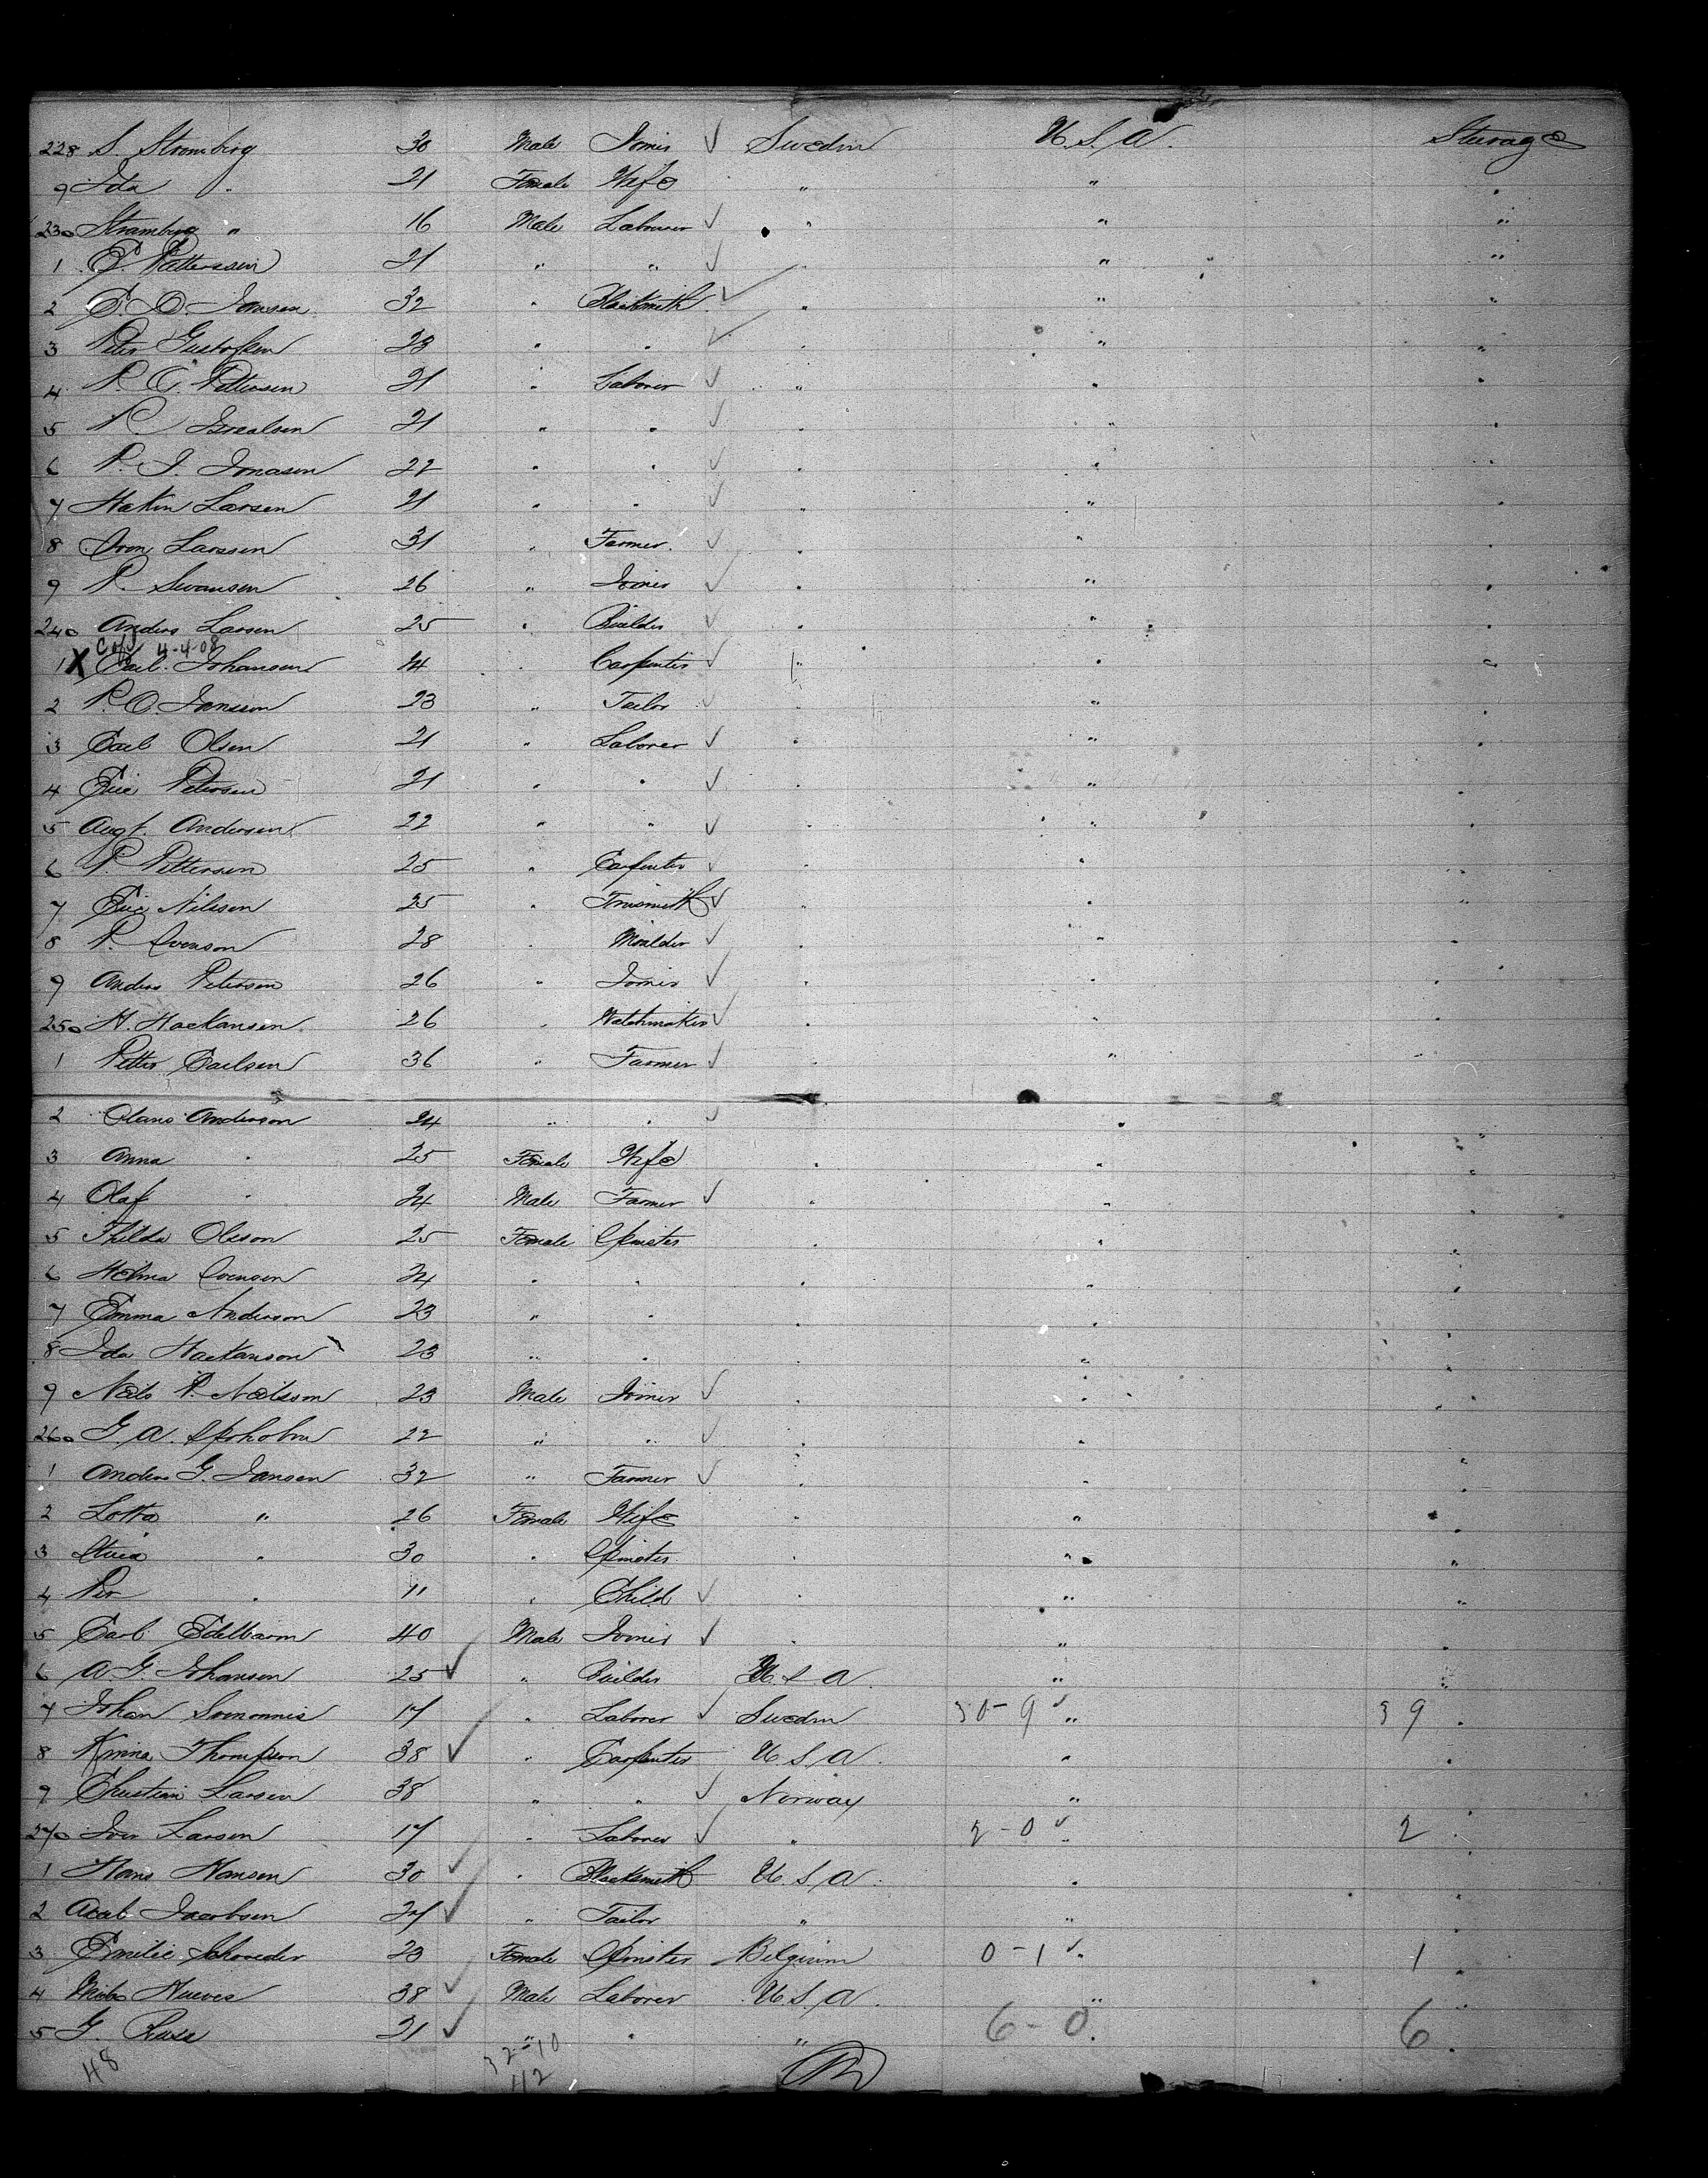 228 S. Stromberg 30 Male Joiner ✓ Sweden U.S.A. Steerage
9 Ida " 21 Female Wife " " "
230 Stromberg " 16 Male Labourer ✓ " " "
1 P. Pettersson 21 " " ✓ " " "
2 C. O. Jonsson 32 " Blacksmith ✓ " " "
3 Peter Gustafson 23 " " ✓ " " "
4 P. C. Petterson 21 " Laborer ✓ " " "
5 P. Israelson 21 " " ✓ " " "
6 P. J. Jonason 22 " " ✓ " " "
7 Hakin Larsen 21 " " ✓ " " "
8 Larsson 31 " Farmer ✓ " " "
9 P. Swansen 26 " Joiner ✓ " " "
240 Anders Larsen 25 " Builder ✓ " " "
4-4-08
1 X Carl Johansen 24 " Carpenter ✓ " " "
2 P. O. Jonsson 23 " Tailor ✓ " " "
3 Carl Olsen 21 " Laborer ✓ " " "
4 Eric Peterson 21 " " ✓ " " "
5 Augt. Anderson 22 " " ✓ " " "
6 P. Petterson 25 " Carpenter ✓ " " "
7 Eric Nilsson 25 " ✓ " " "
8 P. Svenson 28 " Moulder ✓ " " "
9 Anders Peterson 26 " Joiner ✓ " " "
250 H. Hackansen 26 " Watchmaker ✓ " " "
1 Petter Carlsen 36 " Farmer ✓ " " "
2 Anderson 24 " " ✓ " " "
3 Anna " 25 Female Wife " " "
4 Olaf " 24 Male Farmer ✓ " " "
5 Thilda Olsson 25 Female Spinster " " "
6 Helma Svensen 24 " " " " "
7 Emma Anderson 23 " " " " "
8 Ida Hackanson 23 " " " " "
9 Neils P. Neilsson 23 Male Joiner ✓ " " "
260 G. A. 22 " " ✓ " " "
1 Anders G. Jansen 32 " Farmer ✓ " " "
2 Lotta " 26 Female Wife " " "
3 " 30 " Spinster " " "
4 Per " 11 " Child ✓ " " "
5 Carl Edelbarm 40 Male Joiner ✓ " " "
6 A. G. Johansen 25 ✓ " Builder U.S.A. " "
7 Johan 17 " Laborer ✓ Sweden 30-9 ✓ " 39 "
8 Thompson 38 ✓ " Carpenter U.S.A. " "
9 Christian Larsen 38 " " ✓ Norway " "
270 Iver Larsen 17 " Laborer ✓ " 2-0 ✓ " 2 "
1 Hans Hansen 30 ✓ " Blacksmith U.S.A. " "
2 Jacobsen 27 ✓ " Tailor " " "
3 Emilie Schroeder 23 Female Spinster Belgium 0-1 ✓ " 1 "
4 38 ✓ Male Laborer U.S.A. " "
5 G. 21 ✓ " " " 6-0 " 6 "
48 32-10
42